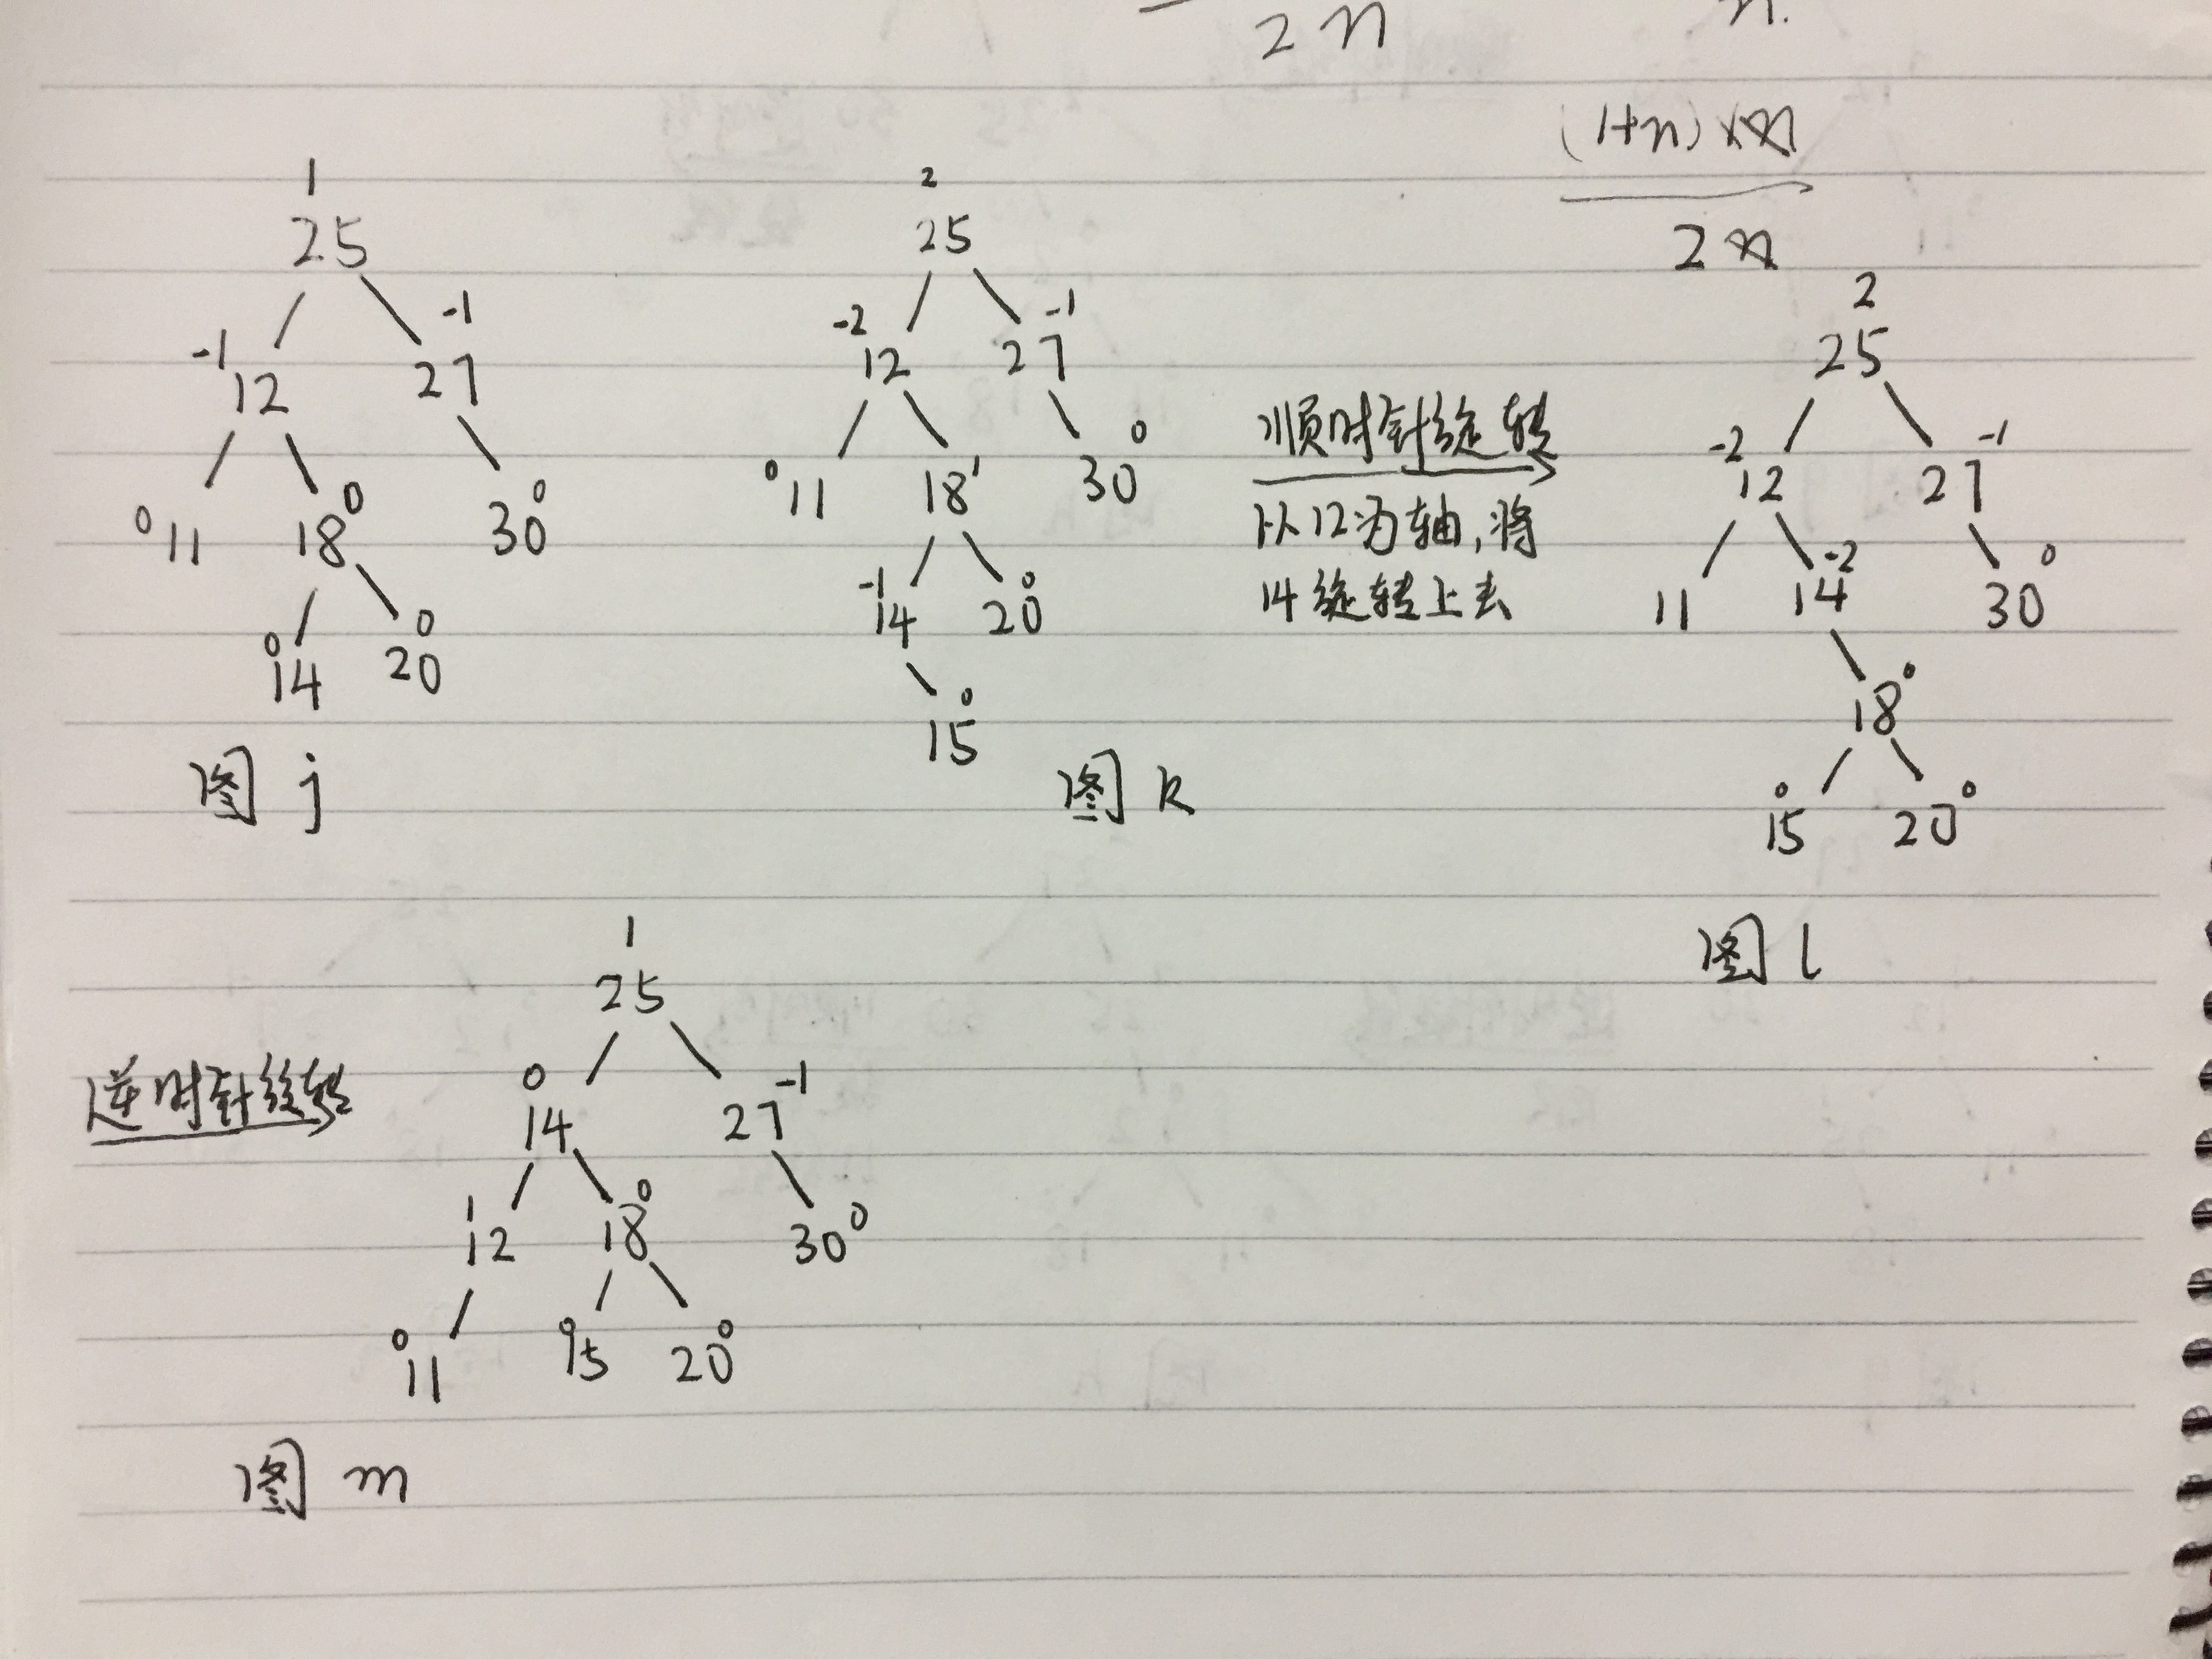 2n
n.
(1+n)×n
2n
1
25
-1
-1
12
27
0
11
18
0
30
0
0
14
20
0
图 j
2
25
-2
-1
12
27
0
11
18
1
30
0
-1
14
20
0
15
0
图 k
顺时针旋转
以12为轴,将
14旋转上去
2
25
-2
-1
12
27
11
14
-2
30
0
18
0
0
15
20
0
图 l
逆时针旋转
1
25
0
-1
14
27
1
12
18
0
30
0
0
11
0
15
20
0
图 m